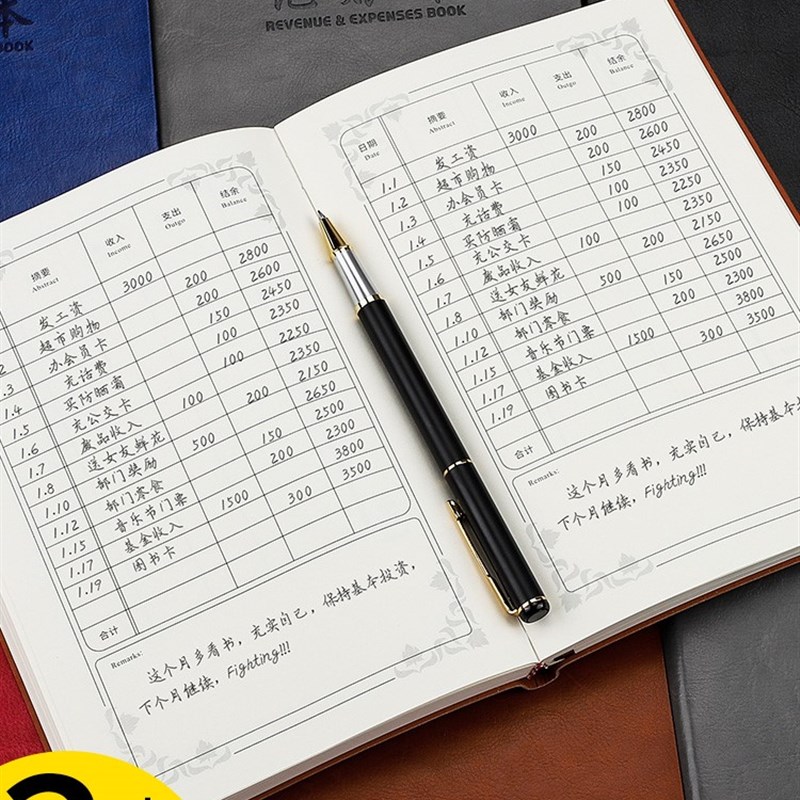 本
OOK
REVENUE & EXPENSES BOOK
摘要 收入 支出 结余
Abstract Income Outgo Balance
发工资 3000
超市购物 200 2800
办会员卡 200 2600
1.4 充话费 150 2450
1.5 买防晒霜 100 2350
1.6 充公交卡 100 2250
1.7 废品收入 100 2350
1.8 送女友鲜花 200 2150
1.10 部门奖励 500 2650
1.12 部门零食 150 2500
1.15 音乐节门票 200 2300
1.17 基金收入 1500 3800
1.19 图书卡 300 3500
合计
Remarks:
这个月多看书，充实自己，保持基本投资，
下个月继续，Fighting!!!
日期 摘要 收入 支出 结余
Date Abstract Income Outgo Balance
1.1 发工资 3000
1.2 超市购物 200 2800
1.3 办会员卡 200 2600
1.4 充话费 150 2450
1.5 买防晒霜 100 2350
1.6 充公交卡 100 2250
1.7 废品收入 100 2350
1.8 送女友鲜花 200 2150
1.10 部门奖励 500 2650
1.12 部门零食 150 2500
1.15 音乐节门票 200 2300
1.17 基金收入 1500 3800
1.19 图书卡 300 3500
合计
Remarks:
这个月多看书，充实自己，保持基本投
下个月继续，Fighting!!!